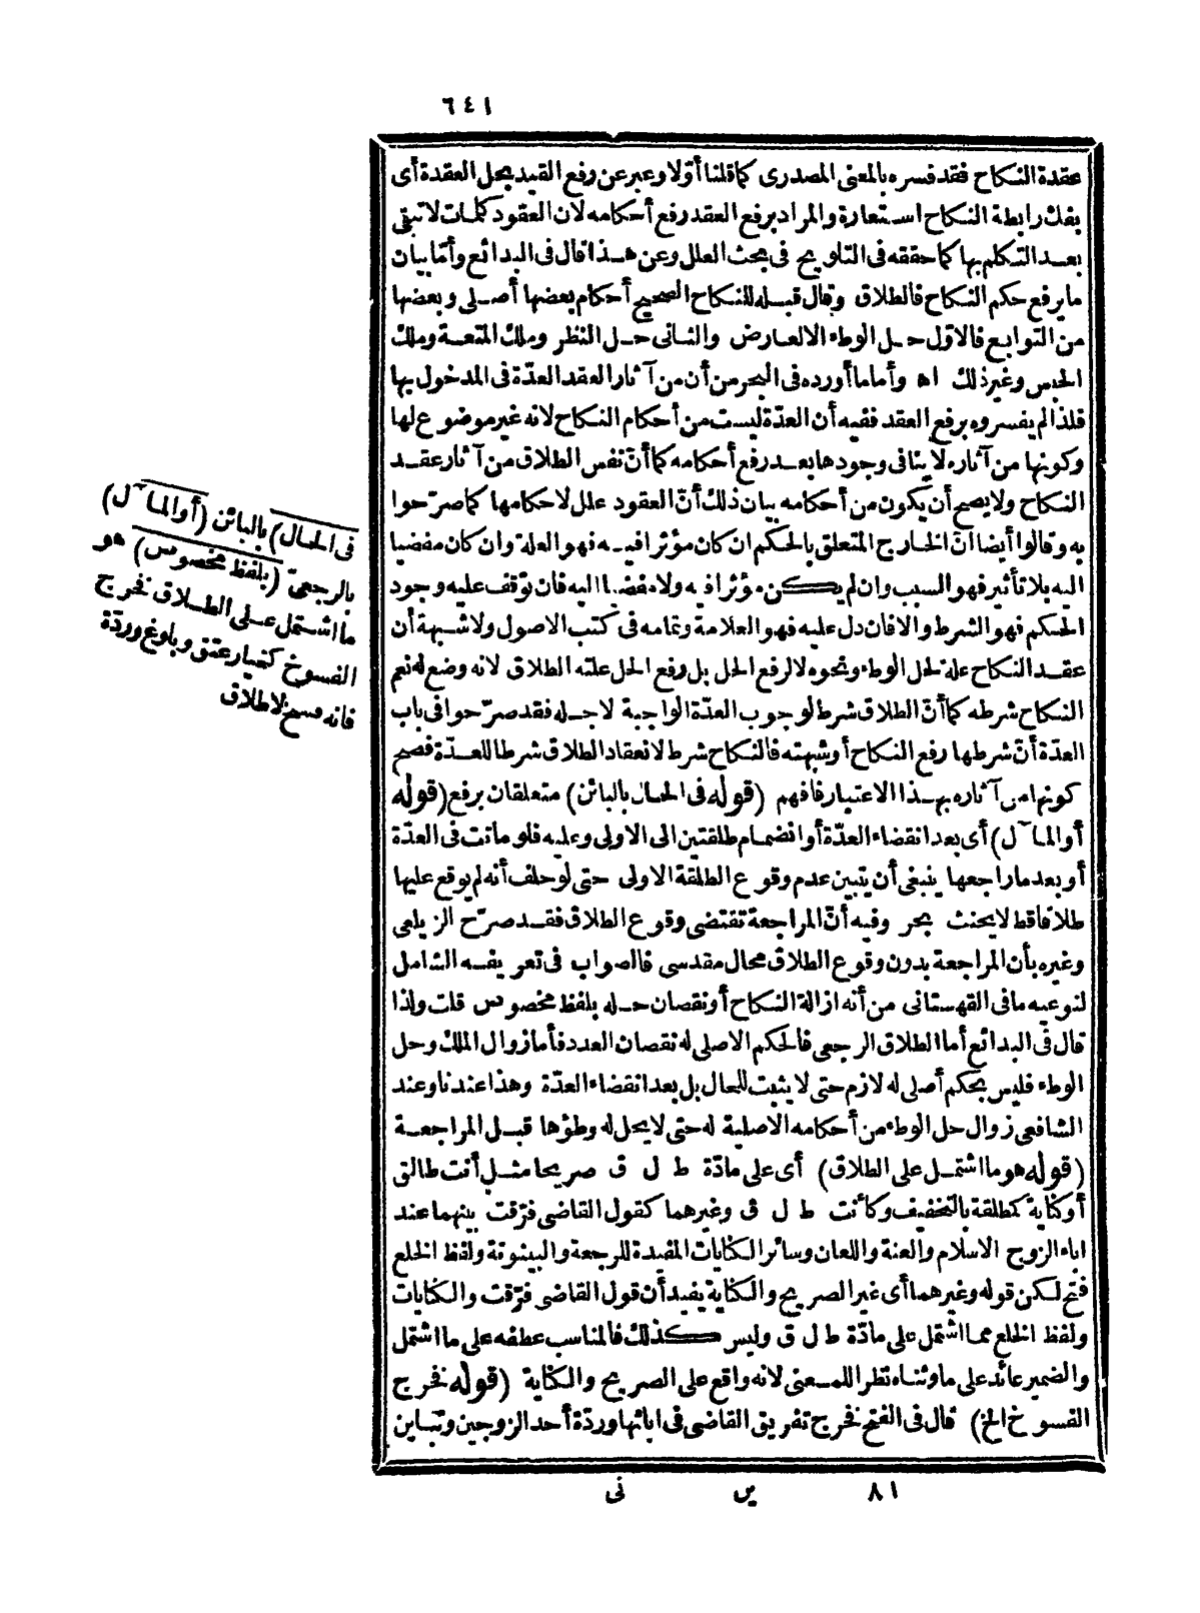 ٦٤١
عقدة النكاح فقد فسره بالمعنى المصدرى كما قلنا أولا وعبر عن رفع القيد بحل العقدة أى
بفك رابطة النكاح استعارة والمراد برفع العقد رفع أحكامه لان العقود كلمات لا تبقى
بعد التكلم بها كما حققه فى التلويح فى بحث العلل وعن هذا قال فى البدائع وأما بيان
ما يرفع حكم النكاح فالطلاق وقال قبله للنكاح الصحيح أحكام بعضها أصلى وبعضها
من التوابع فالاول حل الوطء الالعارض والثانى حل النظر وملك المتعة وملك
الحبس وغير ذلك اه وأما ما أورده فى البحر من أن من آثار العقد العدّة فى المدخول بها
فلذا لم يفسروه برفع العقد ففيه أن العدّة ليست من أحكام النكاح لانه غير موضوع لها
وكونها من آثاره لا ينافى وجودها بعد رفع أحكامه كما أنّ نفس الطلاق من آثار عقد
النكاح ولا يصح أن يكون من أحكامه بيان ذلك أنّ العقود علل لاحكامها كما صرّحوا
به وقالوا أيضا انّ الخارج المتعلق بالحكم ان كان مؤثرا فيه فهو العلة وان كان مفضيا
اليه بلا تأثير فهو السبب وان لم يكن مؤثرا فيه ولا مفضيا اليه فان توقف عليه وجود
الحكم فهو الشرط والا فان دل عليه فهو العلامة وتمامه فى كتب الاصول ولا شبهة أن
عقد النكاح علة لحل الوطء ونحوه لا لرفع الحل بل رفع الحل علته الطلاق لانه وضع له نعم
النكاح شرطه كما أنّ الطلاق شرط لوجوب العدّة الواجبة لاجله فقد صرّحوا فى باب
العدّة أنّ شرطها رفع النكاح أو شبهته فالنكاح شرط لانعقاد الطلاق شرطا للعدّة فصح
كونها من آثاره بهذا الاعتبار فافهم (قوله فى الحال بالبائن) متعلقان برفع (قوله
أو المآل) أى بعد انقضاء العدّة أو انضمام طلقتين الى الاولى وعليه فلو ماتت فى العدّة
أو بعد ما راجعها ينبغى أن يتبين عدم وقوع الطلقة الاولى حتى لو حلف أنه لم يوقع عليها
طلاقا قط لا يحنث بحر وفيه أنّ المراجعة تقتضى وقوع الطلاق فقد صرّح الزيلعى
وغيره بأن المراجعة بدون وقوع الطلاق محال مقدسى فالصواب فى تعريفه الشامل
لنوعيه ما فى القهستانى من أنه ازالة النكاح أو نقصان حله بلفظ مخصوص قلت ولذا
قال فى البدائع أما الطلاق الرجعى فالحكم الاصلى له نقصان العدد فأما زوال الملك وحل
الوطء فليس بحكم أصلى له لازم حتى لا يثبت للحال بل بعد انقضاء العدّة وهذا عندنا وعند
الشافعى زوال حل الوطء من أحكامه الاصلية له حتى لا يحل له وطؤها قبل المراجعة
(قوله هو ما اشتمل على الطلاق) أى على مادّة ط ل ق صريحا مثل أنت طالق
أو كناية كمطلقة بالتخفيف وكأنت ط ل ق وغيرهما كقول القاضى فرّقت بينهما عند
اباء الزوج الاسلام والعنة واللعان وسائر الكنايات المفيدة للرجعة والبينونة ولفظ الخلع
فتح لكن قوله وغيرهما أى غير الصريح والكناية يفيد أن قول القاضى فرّقت والكنايات
ولفظ الخلع مما اشتمل على مادّة ط ل ق وليس كذلك فالمناسب عطفه على ما اشتمل
والضمير عائد على ما وثناه نظرا للمعنى لانه واقع على الصريح والكناية (قوله فخرج
الفسوخ الخ) قال فى الفتح فخرج تفريق القاضى فى ابائها وردّة أحد الزوجين وتباين
فى الحال) بالبائن (أو المآل)
بالرجعىّ (بلفظ مخصوص) هو
ما اشتمل على الطلاق فخرج
الفسوخ كخيار عتق وبلوغ وردّة
فانه فسخ لا طلاق
٨١ ين نى